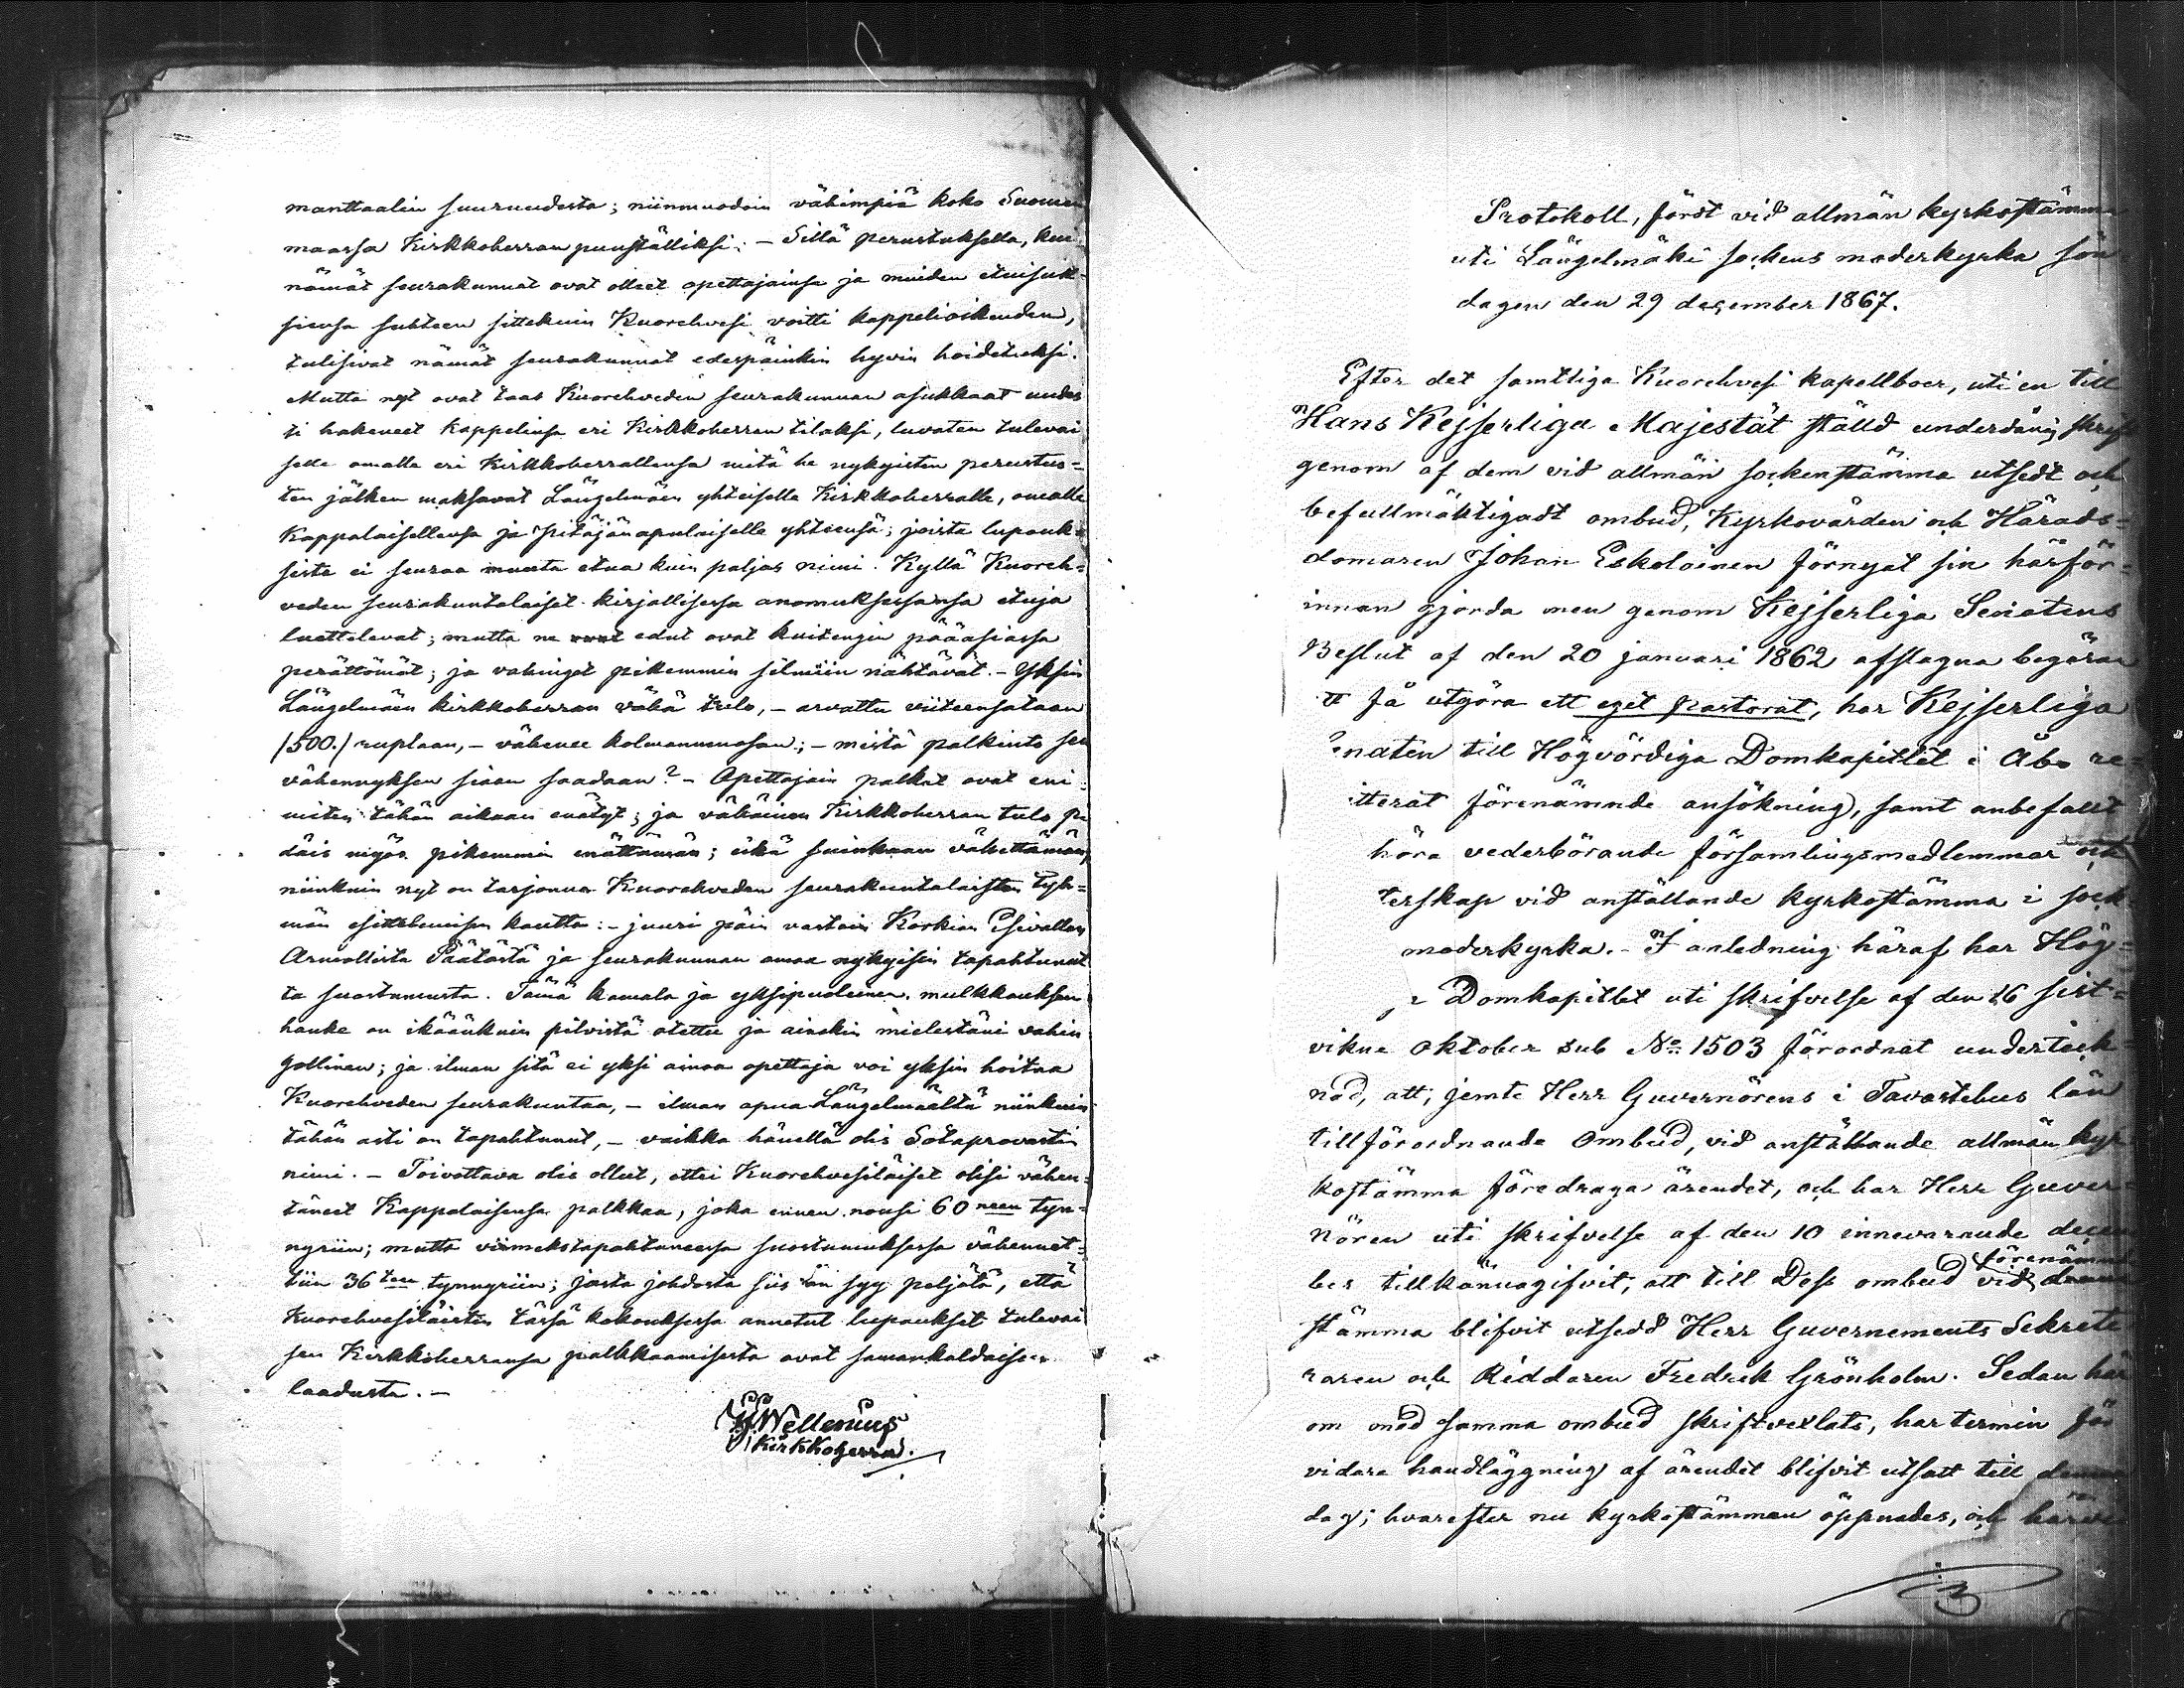 manttaalin suuruudesta; niinmuodoin vähimpiä koko Suomen
maassa Kirkkoherran puuställiksi. – Sillä perustuksella, kui
nämät seurakunnat ovat olleet opettajainsa ja muiden etuisuuk-
siensa suhteen sittekuin Kuorehvesi voitti kappelioikeuden,
tulisivat nämät seurakunnat edespäinkin hyvin hoidetuksi.
Mutta nyt ovat taas Kuorehveden seurakunnan asukkaat uudes
ti hakeneet Kappelinsa eri Kirkkoherran tilaksi, luvaten tulevai
selle omalle eri Kirkkoherrallensa mitä he nykyisten perustus-
ten jälken maksavat Längelmäen yhteiselle Kirkkoherralle, omalle
Kappalaisellensa ja Pitäjänapulaiselle yhteensä; joista lupauk-
sista ei seuraa muuta etua kuin paljas nimi. Kyllä Kuoreh-
veden seurakuntalaiset kirjallisessa anomuksessansa etuja
luettelevat; mutta ne edut ovat kuitengin pääasiassa
perättömät; ja vahingot pikemmin silmiin nähtävät. – Yksin
Längelmäen kirkkoherran vähä tulo, – arvattu viiteensataan
/500./ ruplaan, – vähenee kolmannenosan; – mistä palkinto sen
vähennyksen siaan saadaan? – Opettajain palkat ovat eni-
miten tähän aikaan enätyt; ja vähäinen Kirkkoherran tulo pi
däis myös pikemmin enättämän; eikä suinkaan vähettämän,
niinkuin nyt on tarjonna Kuorehveden seurakuntalaisten tyh-
män esittelemisen kautta: – juuri päin vastoin Korkian Esivallan
Armollista Päätöstä ja seurakunnan omaa nykyisin tapahtunut
ta suostumusta. Tämä kamala ja yksipuolinen mulkkauksen
hanke on ikäänkuin pilvistä otettu ja ainakin mielestäni vahin
gollinen; ja ilman sitä ei yksi ainoa opettaja voi yksin hoitaa
Kuorehveden seurakuntaa, – ilman apua Längelmäeltä niinkuin
tähän asti on tapahtunut, – vaikka hänellä olis Sotaprovastin
nimi. – Toivottava olis ollut, ettei Kuorehvesiläiset olisi vähen-
täneet Kappalaisensa palkkaa, joka ennen nousi 60 neen tyn-
nyriin; mutta viimekstapahtuneessa suostumuksessa vähennet-
tiin 36 teen tynnyriin; josta johdosta siis on syy peljätä, että
Kuorehvesiläisten tässä kokouksessa annetut lupaukset tulevai
sen Kirkkoherransa palkkaamisesta ovat samankaldaisesta
laadusta. –
Wellenius
Kirkkoherra.
Protokoll, fördt vid allmän kyrkostämma
uti Längelmäki sockens moderkyrka sön
dagen den 29 december 1867.
Efter det samtliga Kuorehvesi kapellboer, uti en till
Hans Kejserliga Majestät ställd underdånig skrift
genom af dem vid allmän sockenstämma utsedt och
befullmäktigadt ombud, Kyrkovärden och Härads-
domaren Johan Eskolainen förnyat sin härför-
innan gjorda men genom Kejserliga Senatens
Beslut af den 20 januari 1862 afslagna begäran
tt få utgöra ett eget pastorat, har Kejserliga
enaten till Högvördiga Domkapitlet i Åbo re-
itterat förenämnde ansökning, samt anbefallt
höra vederbörande församlingsmedlemmar och
terskap vid anställande kyrkostämma i sock
moderkyrka. – I anledning häraf har Hög-
a Domkapitlet uti skrifvelse af den 16 sist-
vikne oktober sub No 1503 förordnat underteck-
nad, att, jemte Herr Guvernörens i Tavastehus län
tillförordnande ombud, vid anställande allmän kyr
kostämma föredraga ärendet, och har Herr Guver-
nören uti skrifvelse af den 10 innevarande decem
ber tillkännagifvit, att till Dess ombud vid förenämnd
stämma blifvit utsedd Herr Guvernements Sekrete
raren och Riddaren Fredrik Grönholm. Sedan här
om med samma ombud skriftvexlats, har termin för
vidare handläggning af ärendet blifvit utsatt till denna
dag; hvarefter nu kyrkostämman öppnades, och härvid